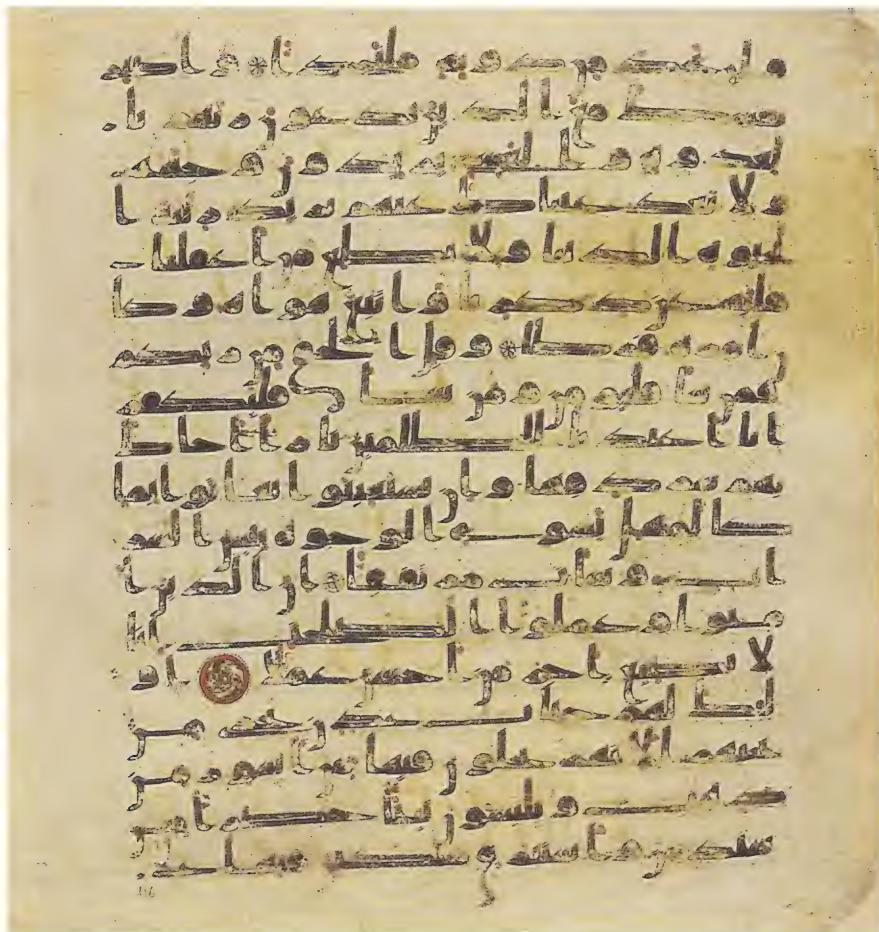 ولن تجد من دونه ملتحدا واصبر
نفسك مع الذين يدعون ربهم با
لغدوة والعشي يريدون وجهه
ولا تعد عيناك عنهم تريد زينة ا
لحيوة الدنيا ولا تطع من اغفلنا
قلبه عن ذكرنا واتبع هوىه وكا
ن امره فرطا وقل الحق من ربكم
فمن شا فليومن ومن شا فليكفر
انا اعتدنا للظلمين نارا احاط
بهم سرادقها وان يستغيثوا يغاثوا بما
كالمهل يشوي الوجوه بئس الشر
اب وسات مرتفقا ان الذين ا
منوا وعملوا الصلحت انا
لا نضيع اجر من احسن عملا او
لئك لهم جنت عدن تجري من
تحتهم الانهر يحلون فيها من اسور من
ذهب ويلبسون ثيابا خضرا من
سندس واستبرق متكين فيها على